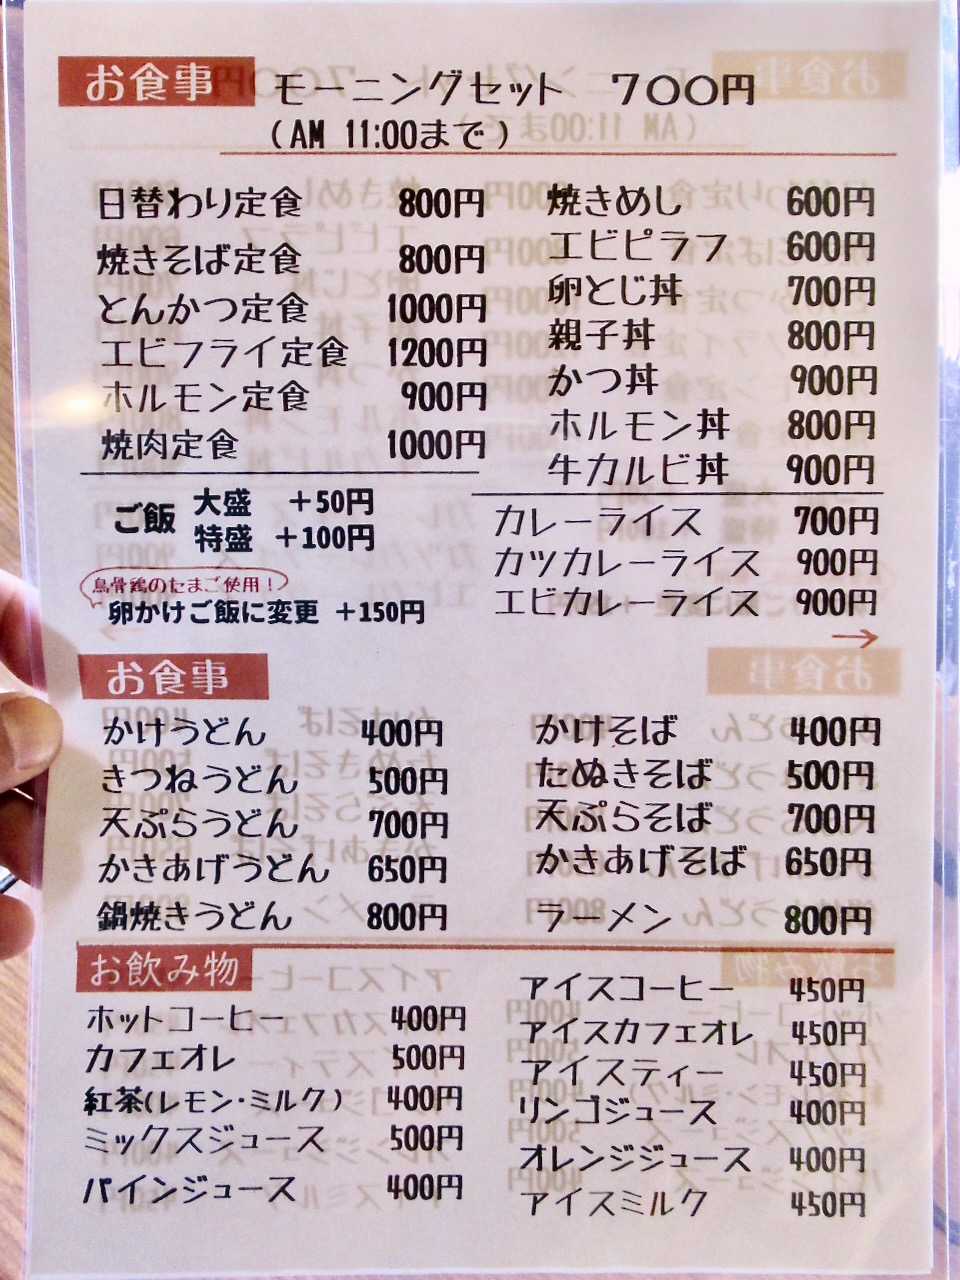 お食事 モーニングセット 700円
(AM 11:00まで)
日替わり定食 800円
焼きそば定食 800円
とんかつ定食 1000円
エビフライ定食 1200円
ホルモン定食 900円
焼肉定食 1000円
ご飯 大盛 +50円
特盛 +100円
烏骨鶏のたまご使用!
卵かけご飯に変更 +150円
焼きめし 600円
エビピラフ 600円
卵とじ丼 700円
親子丼 800円
かつ丼 900円
ホルモン丼 800円
牛カルビ丼 900円
カレーライス 700円
カツカレーライス 900円
エビカレーライス 900円
→
お食事
かけうどん 400円
きつねうどん 500円
天ぷらうどん 700円
かきあげうどん 650円
鍋焼きうどん 800円
かけそば 400円
たぬきそば 500円
天ぷらそば 700円
かきあげそば 650円
ラーメン 800円
お飲み物
ホットコーヒー 400円
カフェオレ 500円
紅茶(レモン・ミルク) 400円
ミックスジュース 500円
パインジュース 400円
アイスコーヒー 450円
アイスカフェオレ 450円
アイスティー 450円
リンゴジュース 400円
オレンジジュース 400円
アイスミルク 450円